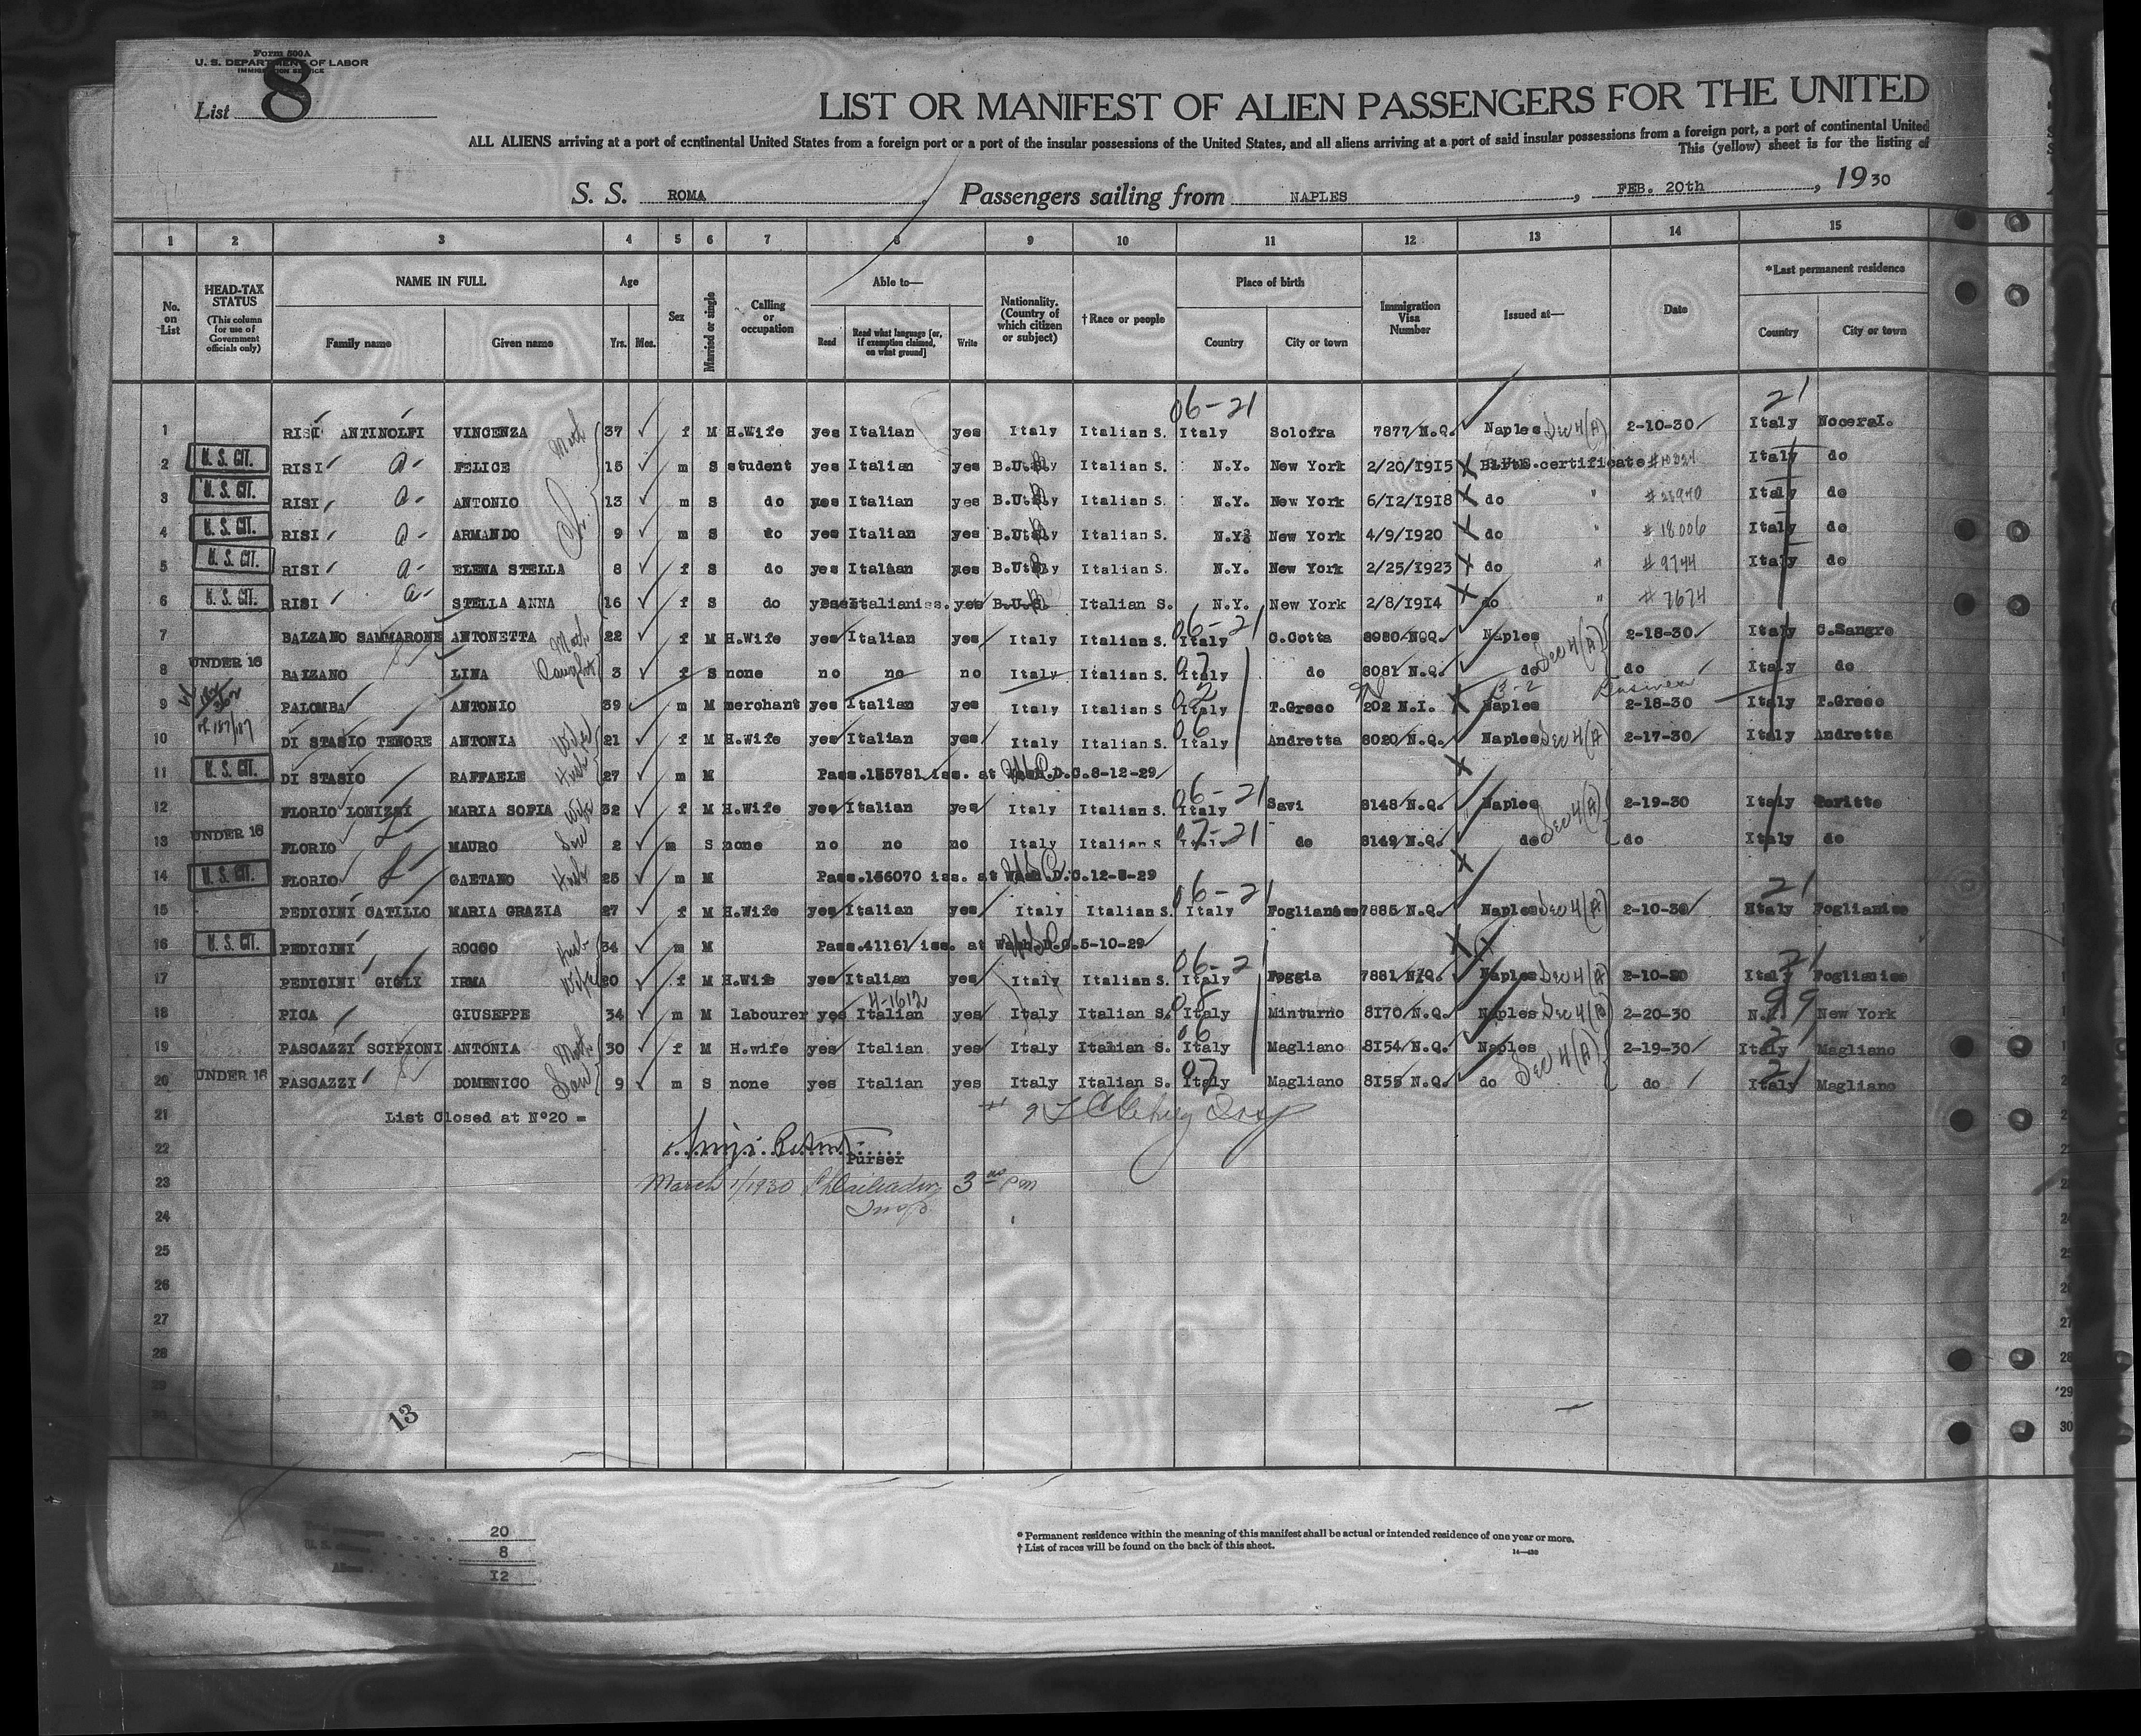 Form 500A
U. S. DEPARTMENT OF LABOR
IMMIGRATION SERVICE
List 8
LIST OR MANIFEST OF ALIEN PASSENGERS FOR THE UNITED
ALL ALIENS arriving at a port of continental United States from a foreign port or a port of the insular possessions of the United States, and all aliens arriving at a port of said insular possessions from a foreign port, a port of continental United
This (yellow) sheet is for the listing of
S. S. ROMA, Passengers sailing from NAPLES, FEB. 20th, 1930
1 2 3 4 5 6 7 8 9 10 11 12 13 14 15
No. on List
HEAD-TAX STATUS (This column for use of Government officials only)
NAME IN FULL Family name Given name
Age Yrs. Mos.
Sex
Married or single
Calling or occupation
Able to— Read Read what language [or, if exemption claimed, on what ground] Write
Nationality. (Country of which citizen or subject)
† Race or people
Place of birth Country City or town
Immigration Visa Number
Issued at—
Date
*Last permanent residence Country City or town
06-21 21
1 RISI ANTINOLFI VINCENZA Moth 37 f M H.Wife yes Italian yes Italy Italian S. Italy Solofra 7877 N.Q. Naples Sec 4(A) 2-10-30 Italy NoceraI.
2 U. S. CIT. RISI a- FELICE 15 m S student yes Italian yes Italian S. N.Y. New York 2/20/1915 certificate Italy do
3 U. S. CIT. RISI a- ANTONIO 13 m S do yes Italian yes Italian S. N.Y. New York 6/12/1918 do " Italy do
4 U. S. CIT. RISI a- ARMANDO 9 m S do yes Italian yes Italian S. N.Y. New York 4/9/1920 do " #18006 Italy do
5 U. S. CIT. RISI a- ELENA STELLA 8 f S do yes Italian yes Italian S. N.Y. New York 2/25/1923 do " #9744 Italy do
6 U. S. CIT. RISI a- STELLA ANNA 16 f S do yes B.U.S. Italian S. N.Y. New York 2/8/1914 do " #7674
06-21
7 BALZANO SAMMARONE ANTONETTA Moth 22 f M H.Wife yes Italian yes Italy Italian S. Italy C.Cotta 8080 N.Q. Naples Sec 4(A) 2-18-30 Italy C.Sangro
8 UNDER 16 BALZANO LINA Daught 3 f S none no no no Italy Italian S. Italy do 8081 N.Q. do do Italy do
9 PALOMBA ANTONIO 39 m M merchant yes Italian yes Italy Italian S Italy T.Greco 202 N.I. Naples 3-2 Business 2-18-30 Italy T.Greco
10 DI STASIO TENORE ANTONIA Wife 21 f M H.Wife yes Italian yes Italy Italian S. Italy Andretta 8020 N.Q. Naples Sec 4(A) 2-17-30 Italy Andretta
11 U. S. CIT. DI STASIO RAFFAELE Husb 27 m M Pass.155781 iss. at Wash.D.C.8-12-29
06-21
12 FLORIO LONIZZI MARIA SOFIA Wife 32 f M H.Wife yes Italian yes Italy Italian S. Italy Savi 8148 N.Q. Naples Sec 4(A) 2-19-30 Italy
13 UNDER 16 FLORIO MAURO 2 m S none no no no Italy Italian S 07-21 do 8149 N.Q. do do Italy do
14 U. S. CIT. FLORIO GAETANO Husb 25 m M Pass.156070 iss. at Wash.D.C.12-5-29
06-21 21
15 PEDICINI CATILLO MARIA GRAZIA 27 f M H.Wife yes Italian yes Italy Italian S. Italy Foglianise 7885 N.Q. Naples Sec 4(A) 2-10-30 Italy Foglianise
16 U. S. CIT. PEDICINI ROCCO Husb- 34 m M Pass.41161 iss. at Wash.D.C.5-10-29
06-21 21
17 PEDICINI GIGLI IRMA Wife 20 f M H.Wife yes Italian yes Italy Italian S. Italy Foggia 7881 N.Q. Naples Sec 4(A) 2-10-30 Italy Foglianise
4-1612 99
18 PICA GIUSEPPE 34 m M labourer yes Italian yes Italy Italian S. Italy Minturno 8170 N.Q. Naples Sec 4(B) 2-20-30 N.Y. New York
19 PASCAZZI SCIPIONI ANTONIA Moth 30 f M H.wife yes Italian yes Italy Italian S. Italy Magliano 8154 N.Q. Naples Sec 4(A) 2-19-30 Italy Magliano
20 UNDER 16 PASCAZZI DOMENICO Son 9 m S none yes Italian yes Italy Italian S. Italy Magliano 8155 N.Q. do do Italy Magliano
21 List Closed at Nº20 =
22 Purser
23 March 1/1930 3 00 pm
Insp
24
25
26
27
28
29
30
13
Total passengers 20
U. S. citizens 8
Aliens 12
* Permanent residence within the meaning of this manifest shall be actual or intended residence of one year or more.
† List of races will be found on the back of this sheet.